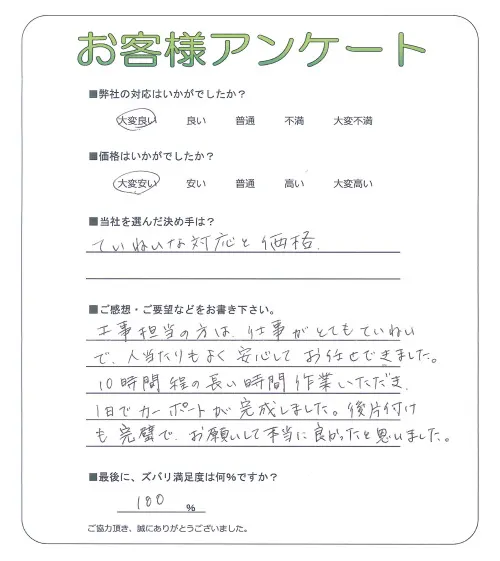 お客様アンケート
■弊社の対応はいかがでしたか？
大変良い 良い 普通 不満 大変不満
■価格はいかがでしたか？
大変安い 安い 普通 高い 大変高い
■当社を選んだ決め手は？
ていねいな対応と価格.
■ご感想・ご要望などをお書き下さい。
工事担当の方は、仕事がとてもていねい
で、人当たりもよく安心してお任せできました。
10時間程の長い時間作業いただき、
1日でカーポートが完成しました。後片付け
も完璧で、お願いして本当に良かったと思いました。
■最後に、ズバリ満足度は何％ですか？
100 %
ご協力頂き、誠にありがとうございました。